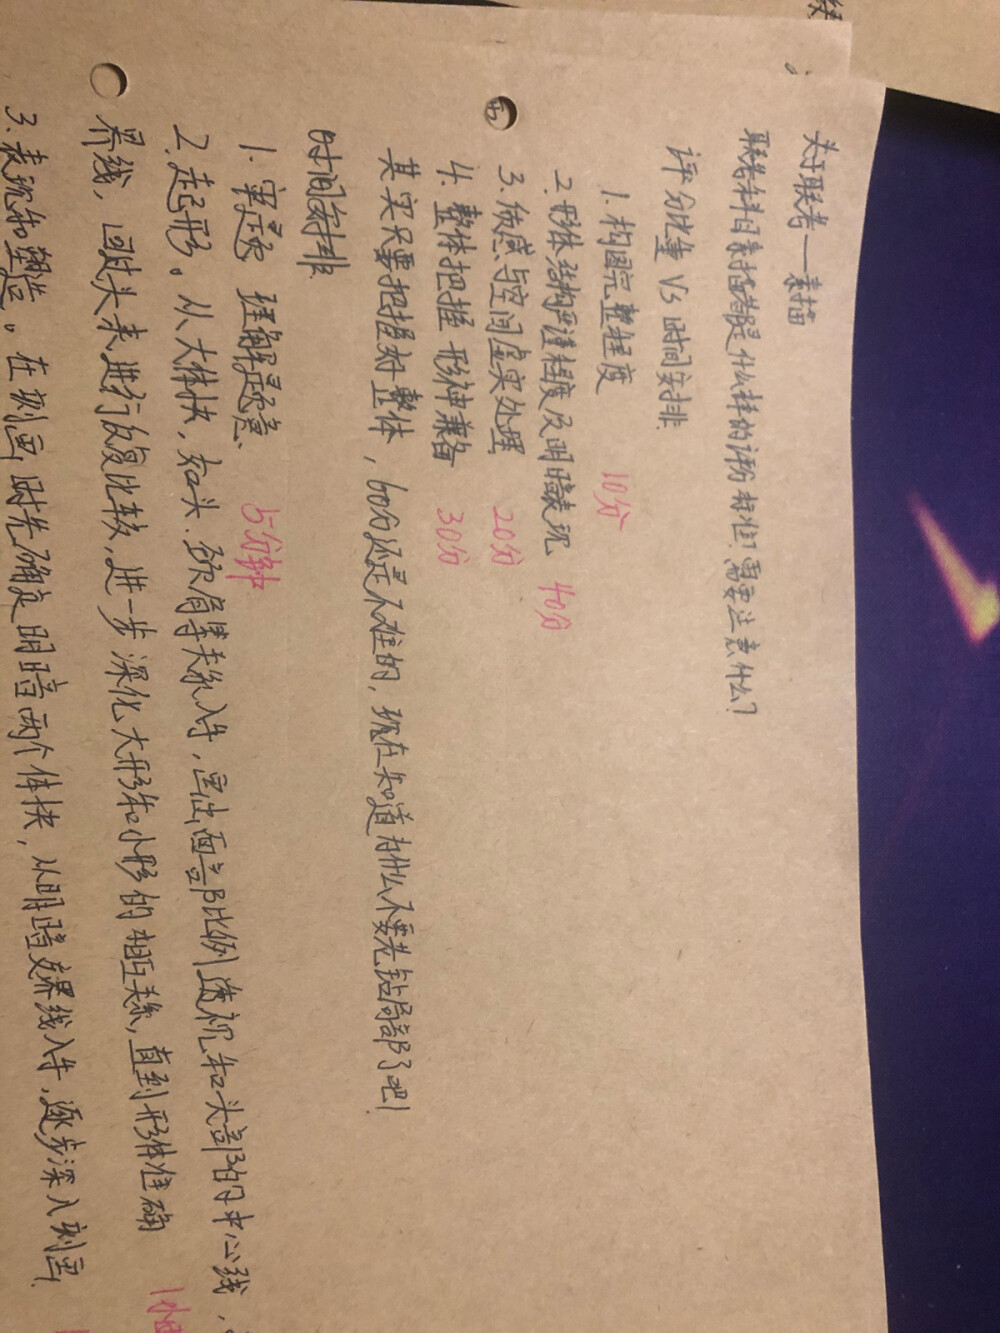 关于联考——素描
联考科目素描都是什么样的评分标准？需要注意什么？
评分比重 VS 时间安排
1. 构图完整程度 10分
2. 形体结构严谨程度及明暗表现 40分
3. 质感与空间虚实处理 20分
4. 整体把握 形神兼备 30分
其实只要把握好整体，60分还是不难的，现在知道为什么不要先钻局部了吧！
时间安排
1. 审题 理解题意 5分钟
2. 起形。从大体块，如头、颈、肩等关系入手，画出面部比例透视和头部的中心线，
界线，回过头来进行反复比较，进一步深化大形和小形的相互关系，直到形体准确
1小
3. 表现和塑造。在刻画时先确定明暗两个体块，从明暗交界线入手，逐步深入刻画